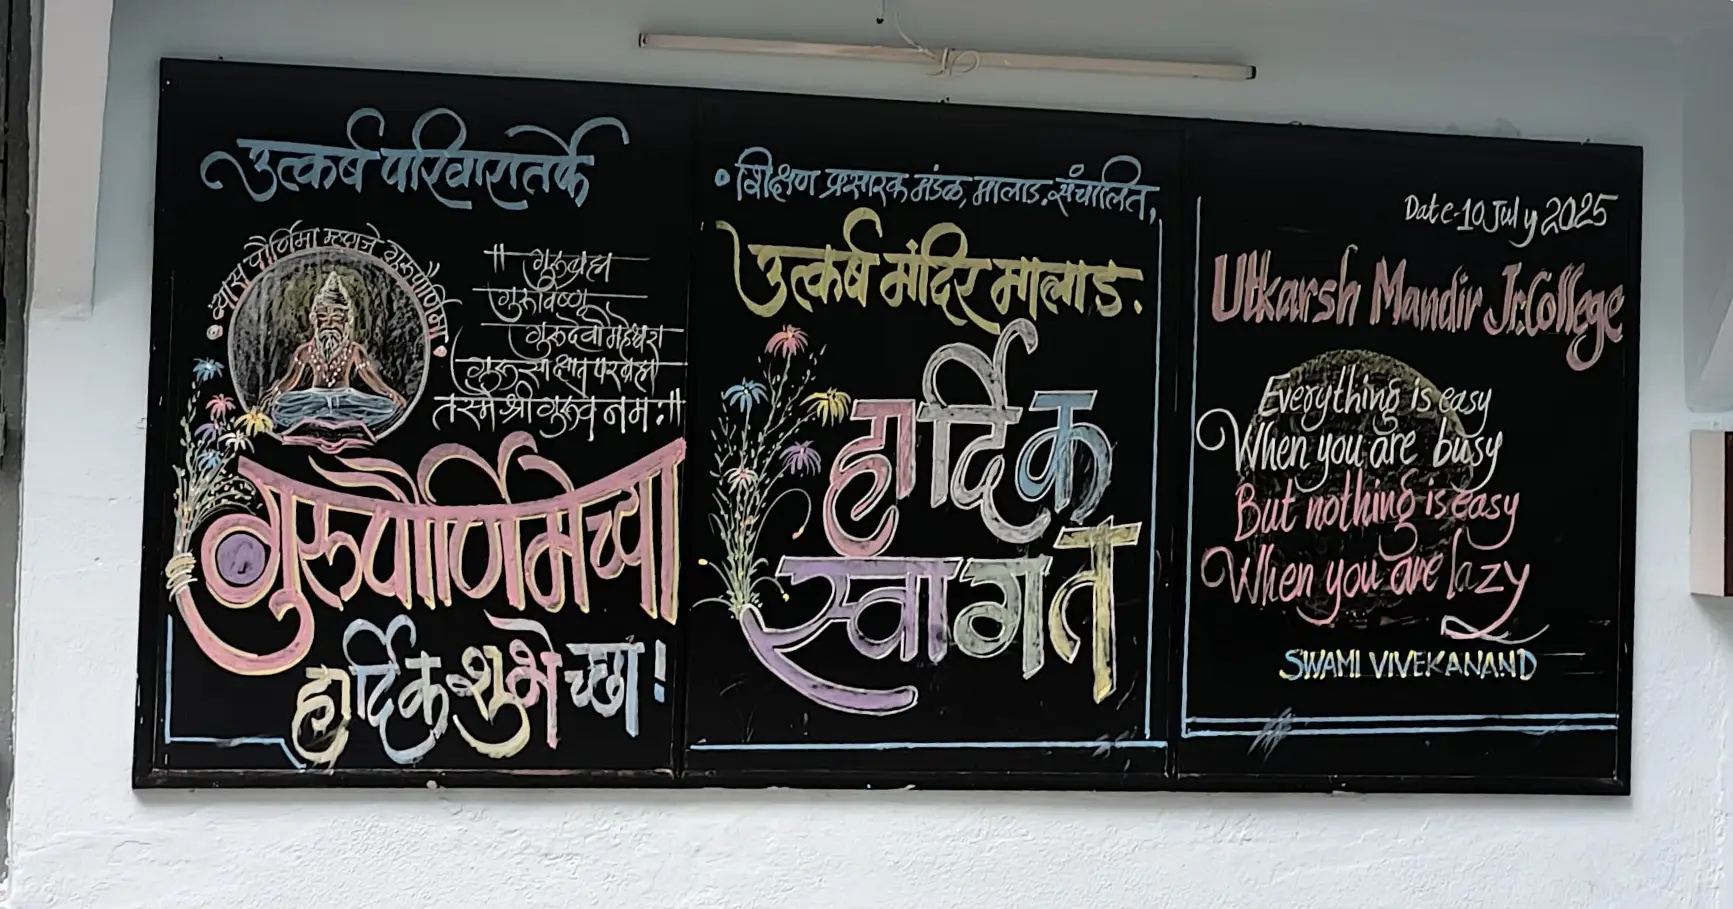 उत्कर्ष परिवारातर्फे
व्यास पौर्णिमा म्हणजे गुरूपौर्णिमा
॥ गुरुब्रह्मा
गुरुर्विष्णू
गुरुदेवोमहेश्वरा
गुरु साक्षात परब्रह्म
तस्मै श्री गुरुवे नमः॥
गुरुपौर्णिमेच्या
हार्दिक शुभेच्छा!
शिक्षण प्रसारक मंडळ, मालाड. संचालित,
उत्कर्ष मंदिर मालाड.
हार्दिक
स्वागत
Date-10 July 2025
Utkarsh Mandir Jr.College
Everything is easy
When you are busy
But nothing is easy
When you are lazy
SWAMI VIVEKANAND